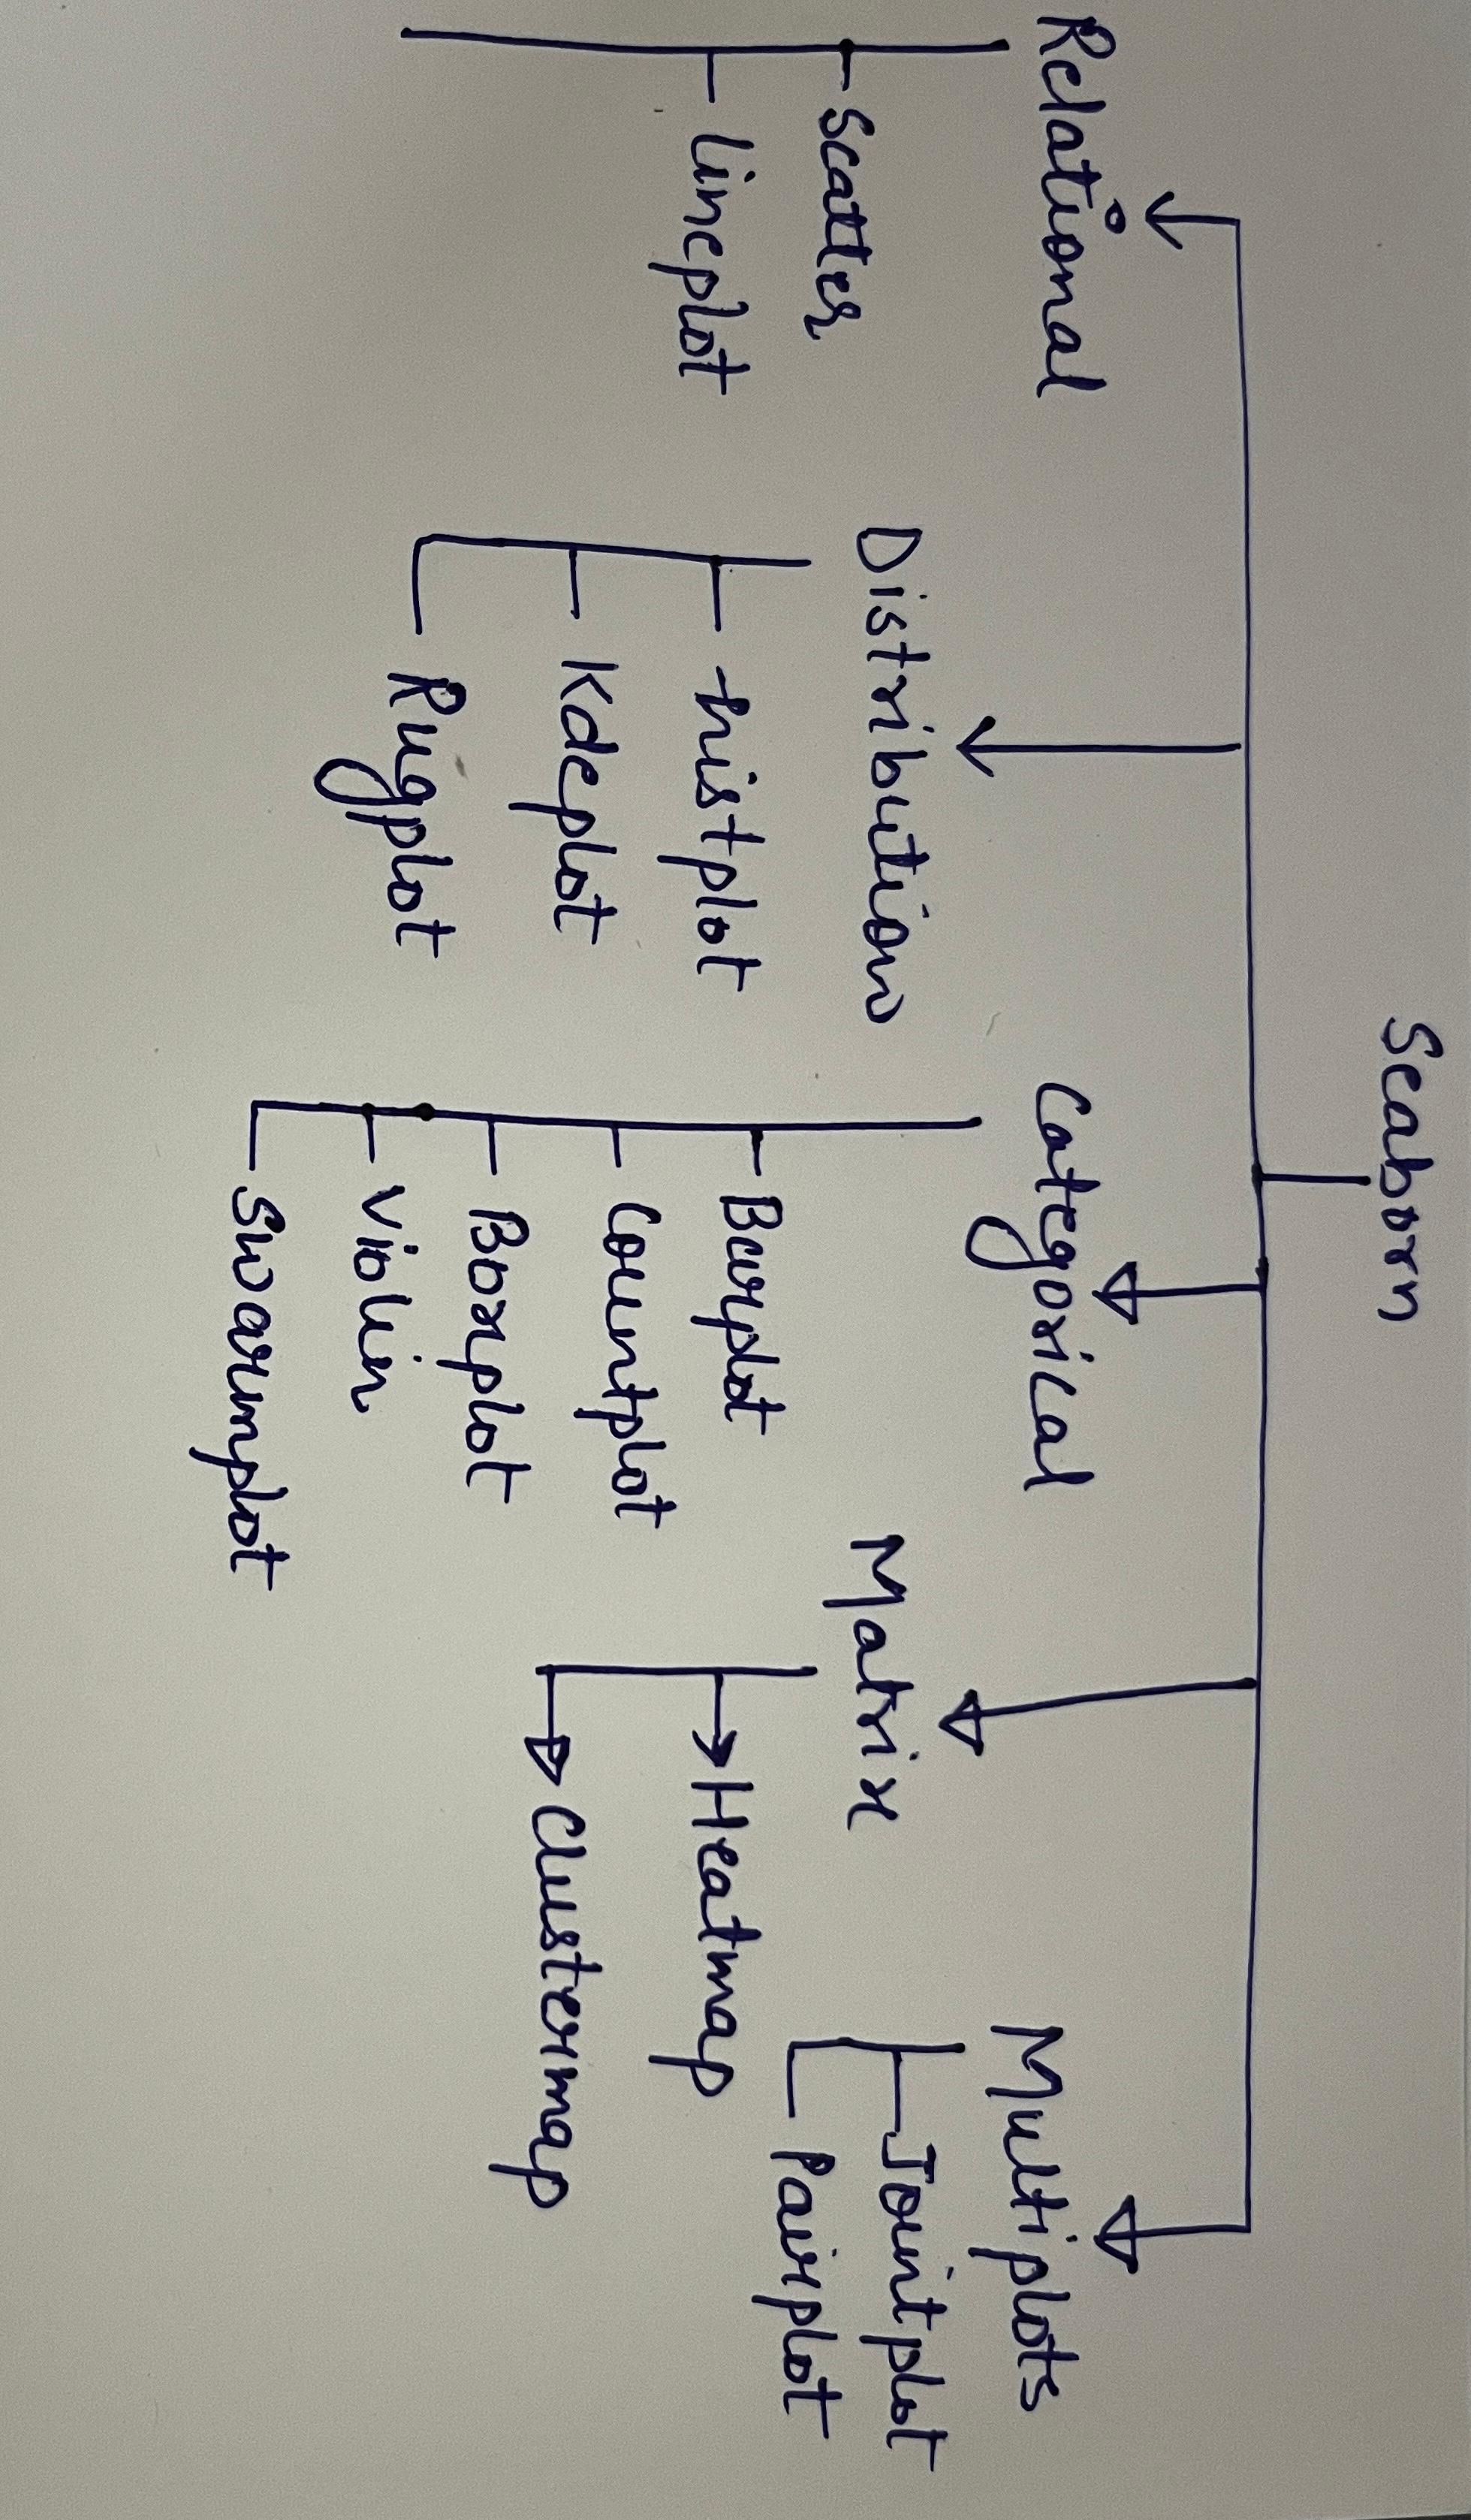 Seaborn
Relational
Scatter
lineplot
Distribution
histplot
Kdeplot
Rugplot
Categorical
Barplot
Countplot
Boxplot
Violin
Swarmplot
Matrix
Heatmap
Clustermap
Multiplots
Jointplot
Pairplot